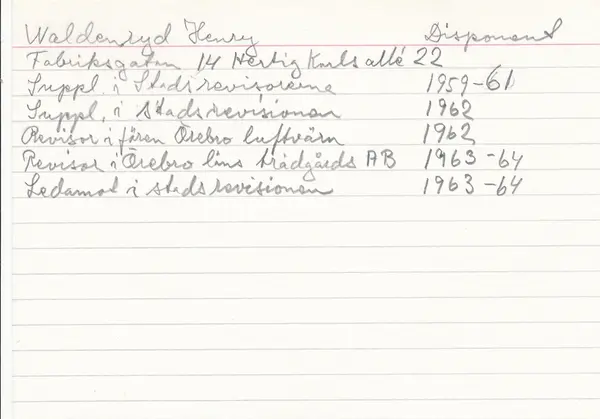 Waldenryd Henry Disponent
Fabriksgatan 14 Hertig Karls allé 22
Suppl. i Stadsrevisorerna 1959-61
Suppl. i stadsrevisionen 1962
Revisor i fören Örebro luftvärn 1962
Revisor i Örebro läns trädgårds AB 1963-64
Ledamot i stadsrevisionen 1963-64